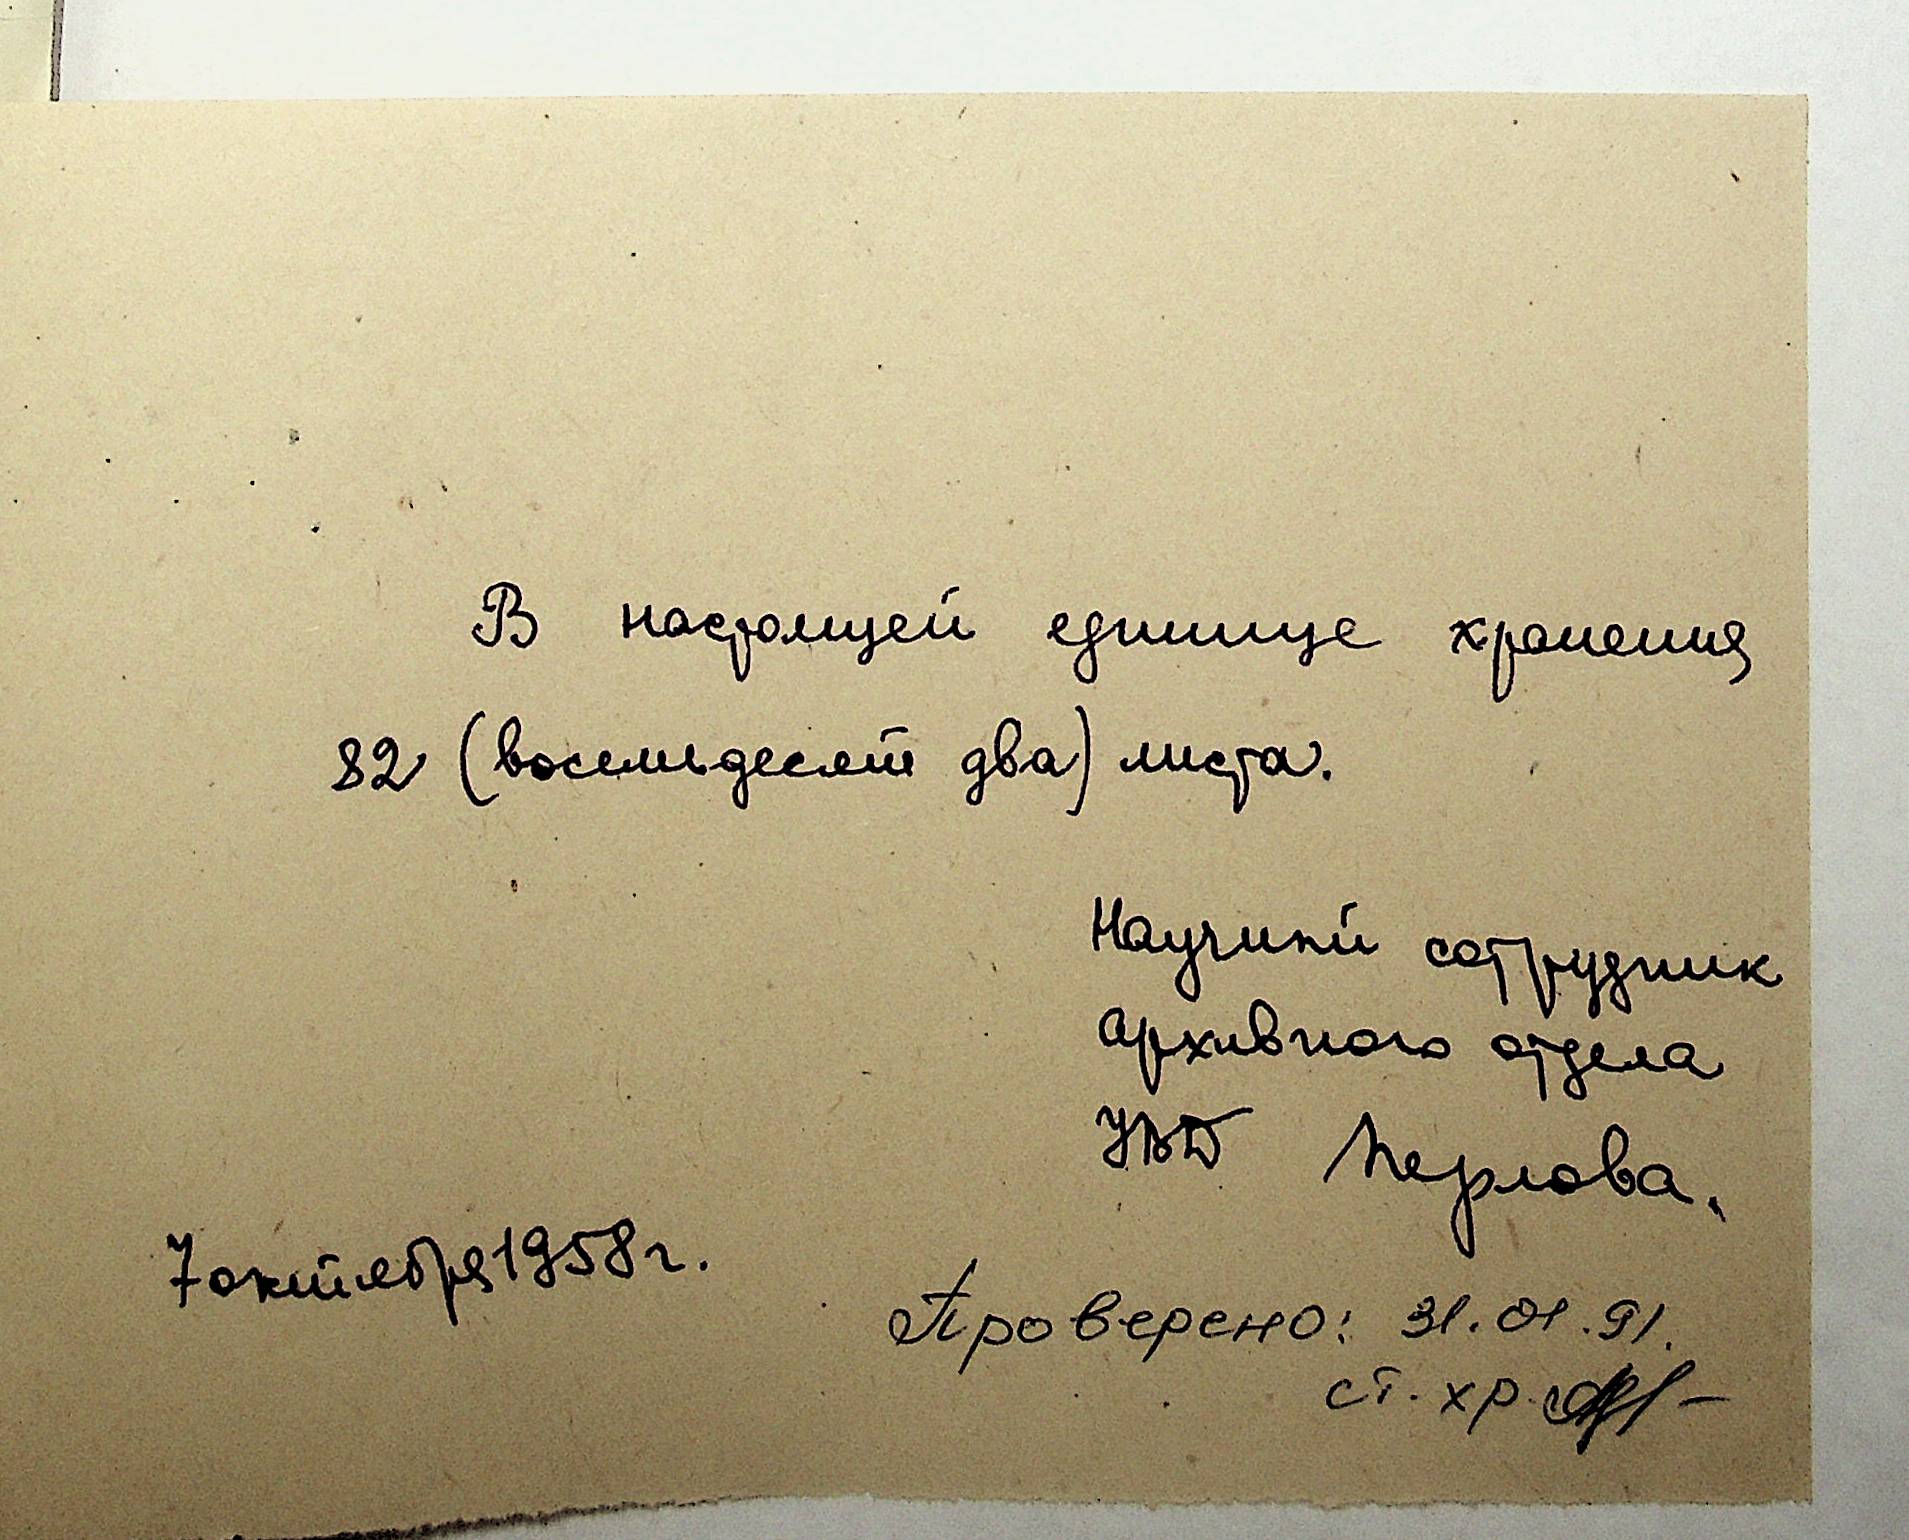 В настоящей единице хранения
82 (восемьдесят два) листа.
Научный сотрудник
архивного отдела
УВД Перлова.
7 октября 1958 г.
Проверено: 31.01.91.
ст. хр.